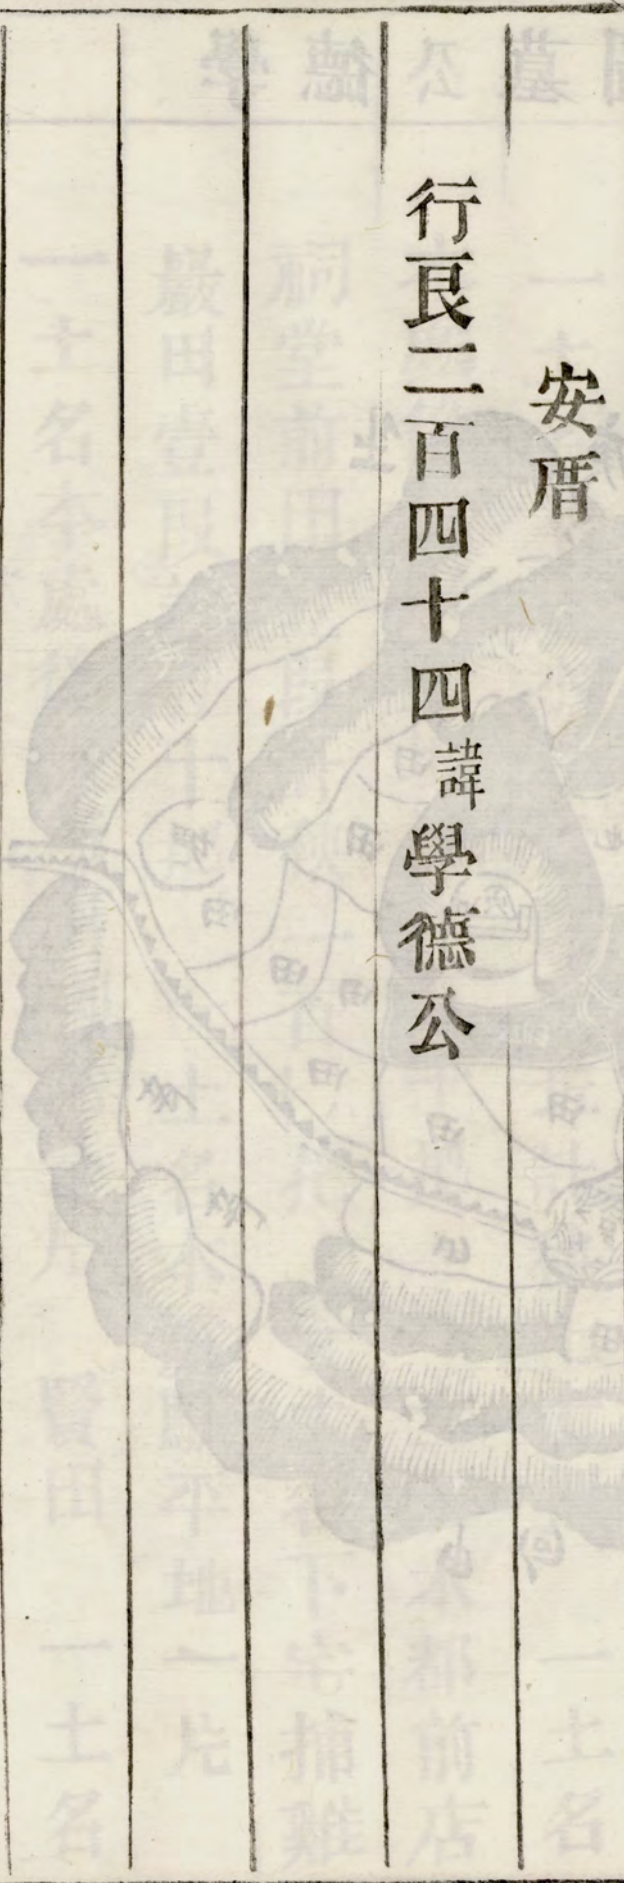 安厝
行艮二百四十四諱學德公